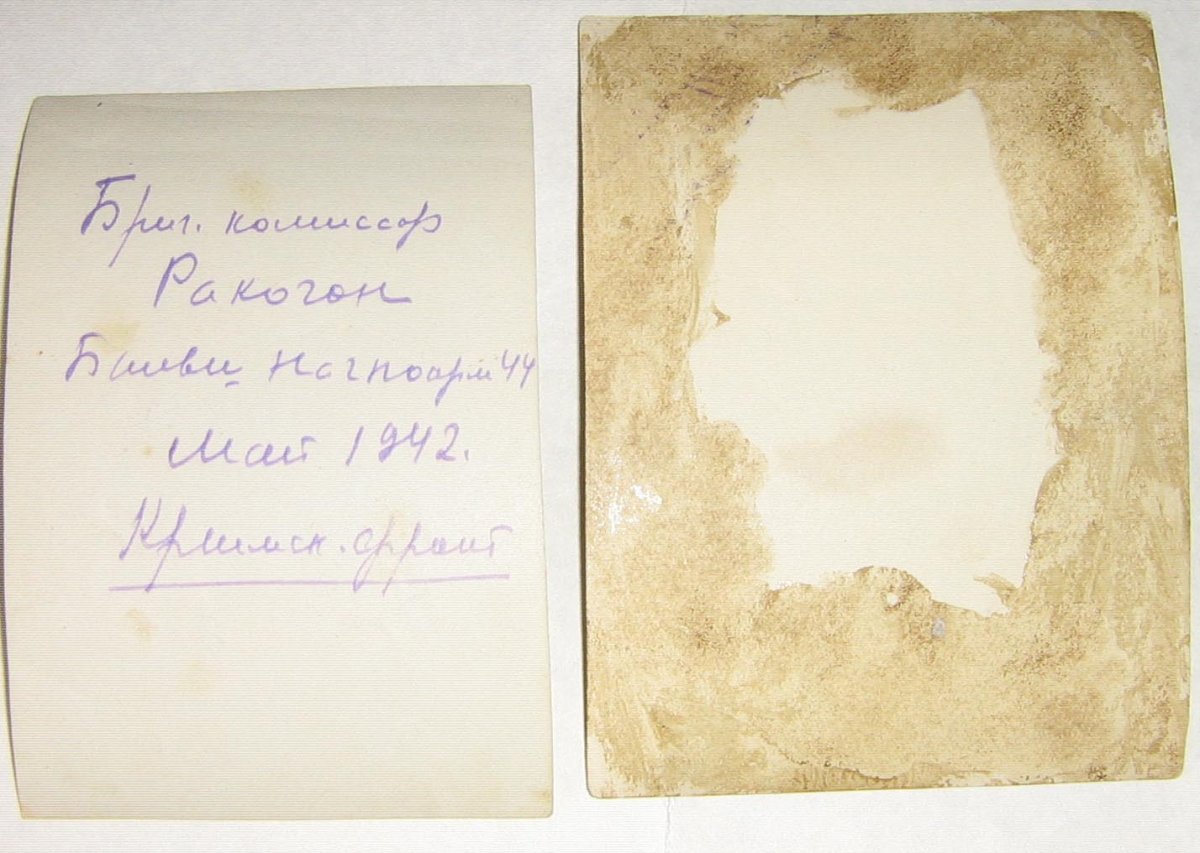 Бриг. комиссар
Ракогон
начпоарм 44
Май 1942.
Крымск. фронт